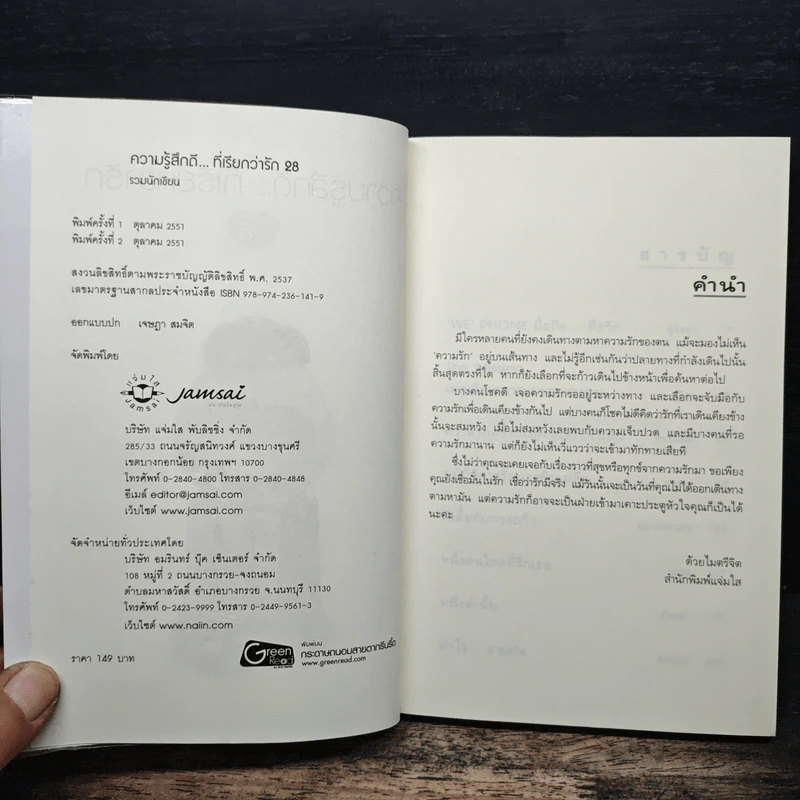 ความรู้สึกดี... ที่เรียกว่ารัก 28
รวมนักเขียน
พิมพ์ครั้งที่ 1 ตุลาคม 2551
พิมพ์ครั้งที่ 2 ตุลาคม 2551
สงวนลิขสิทธิ์ตามพระราชบัญญัติลิขสิทธิ์ พ.ศ. 2537
เลขมาตรฐานสากลประจำหนังสือ ISBN 978-974-236-141-9
ออกแบบปก เจษฎา สมจิต
จัดพิมพ์โดย
แจ่มใส
Jamsai
Jamsai
บริษัท แจ่มใส พับลิชชิ่ง จำกัด
285/33 ถนนจรัญสนิทวงศ์ แขวงบางขุนศรี
เขตบางกอกน้อย กรุงเทพฯ 10700
โทรศัพท์ 0-2840-4800 โทรสาร 0-2840-4848
อีเมล์ editor@jamsai.com
เว็บไซต์ www.jamsai.com
จัดจำหน่ายทั่วประเทศโดย
บริษัท อมรินทร์ บุ๊ค เซ็นเตอร์ จำกัด
108 หมู่ที่ 2 ถนนบางกรวย-จงถนอม
ตำบลมหาสวัสดิ์ อำเภอบางกรวย จ.นนทบุรี 11130
โทรศัพท์ 0-2423-9999 โทรสาร 0-2449-9561-3
เว็บไซต์ www.naiin.com
ราคา 149 บาท
Green Read
พิมพ์บน
กระดาษถนอมสายตากรีนรี้ด
www.greenread.com
คำนำ
มีใครหลายคนที่ยังคงเดินทางตามหาความรักของตน แม้จะมองไม่เห็น
‘ความรัก’ อยู่บนเส้นทาง และไม่รู้อีกเช่นกันว่าปลายทางที่กำลังเดินไปนั้น
สิ้นสุดตรงที่ใด หากก็ยังเลือกที่จะก้าวเดินไปข้างหน้าเพื่อค้นหาต่อไป
บางคนโชคดี เจอความรักรออยู่ระหว่างทาง และเลือกจะจับมือกับ
ความรักเพื่อเดินเคียงข้างกันไป แต่บางคนก็โชคไม่ดีคิดว่ารักที่เราเดินเคียงข้าง
นั้นจะสมหวัง เมื่อไม่สมหวังเลยพบกับความเจ็บปวด และมีบางคนที่รอ
ความรักมานาน แต่ก็ยังไม่เห็นวี่แววว่าจะเข้ามาทักทายเสียที
ซึ่งไม่ว่าคุณจะเคยเจอกับเรื่องราวที่สุขหรือทุกข์จากความรักมา ขอเพียง
คุณยังเชื่อมั่นในรัก เชื่อว่ารักมีจริง แม้วันนั้นจะเป็นวันที่คุณไม่ได้ออกเดินทาง
ตามหามัน แต่ความรักก็อาจจะเป็นฝ่ายเข้ามาเคาะประตูหัวใจคุณก็เป็นได้
นะคะ
ด้วยไมตรีจิต
สำนักพิมพ์แจ่มใส